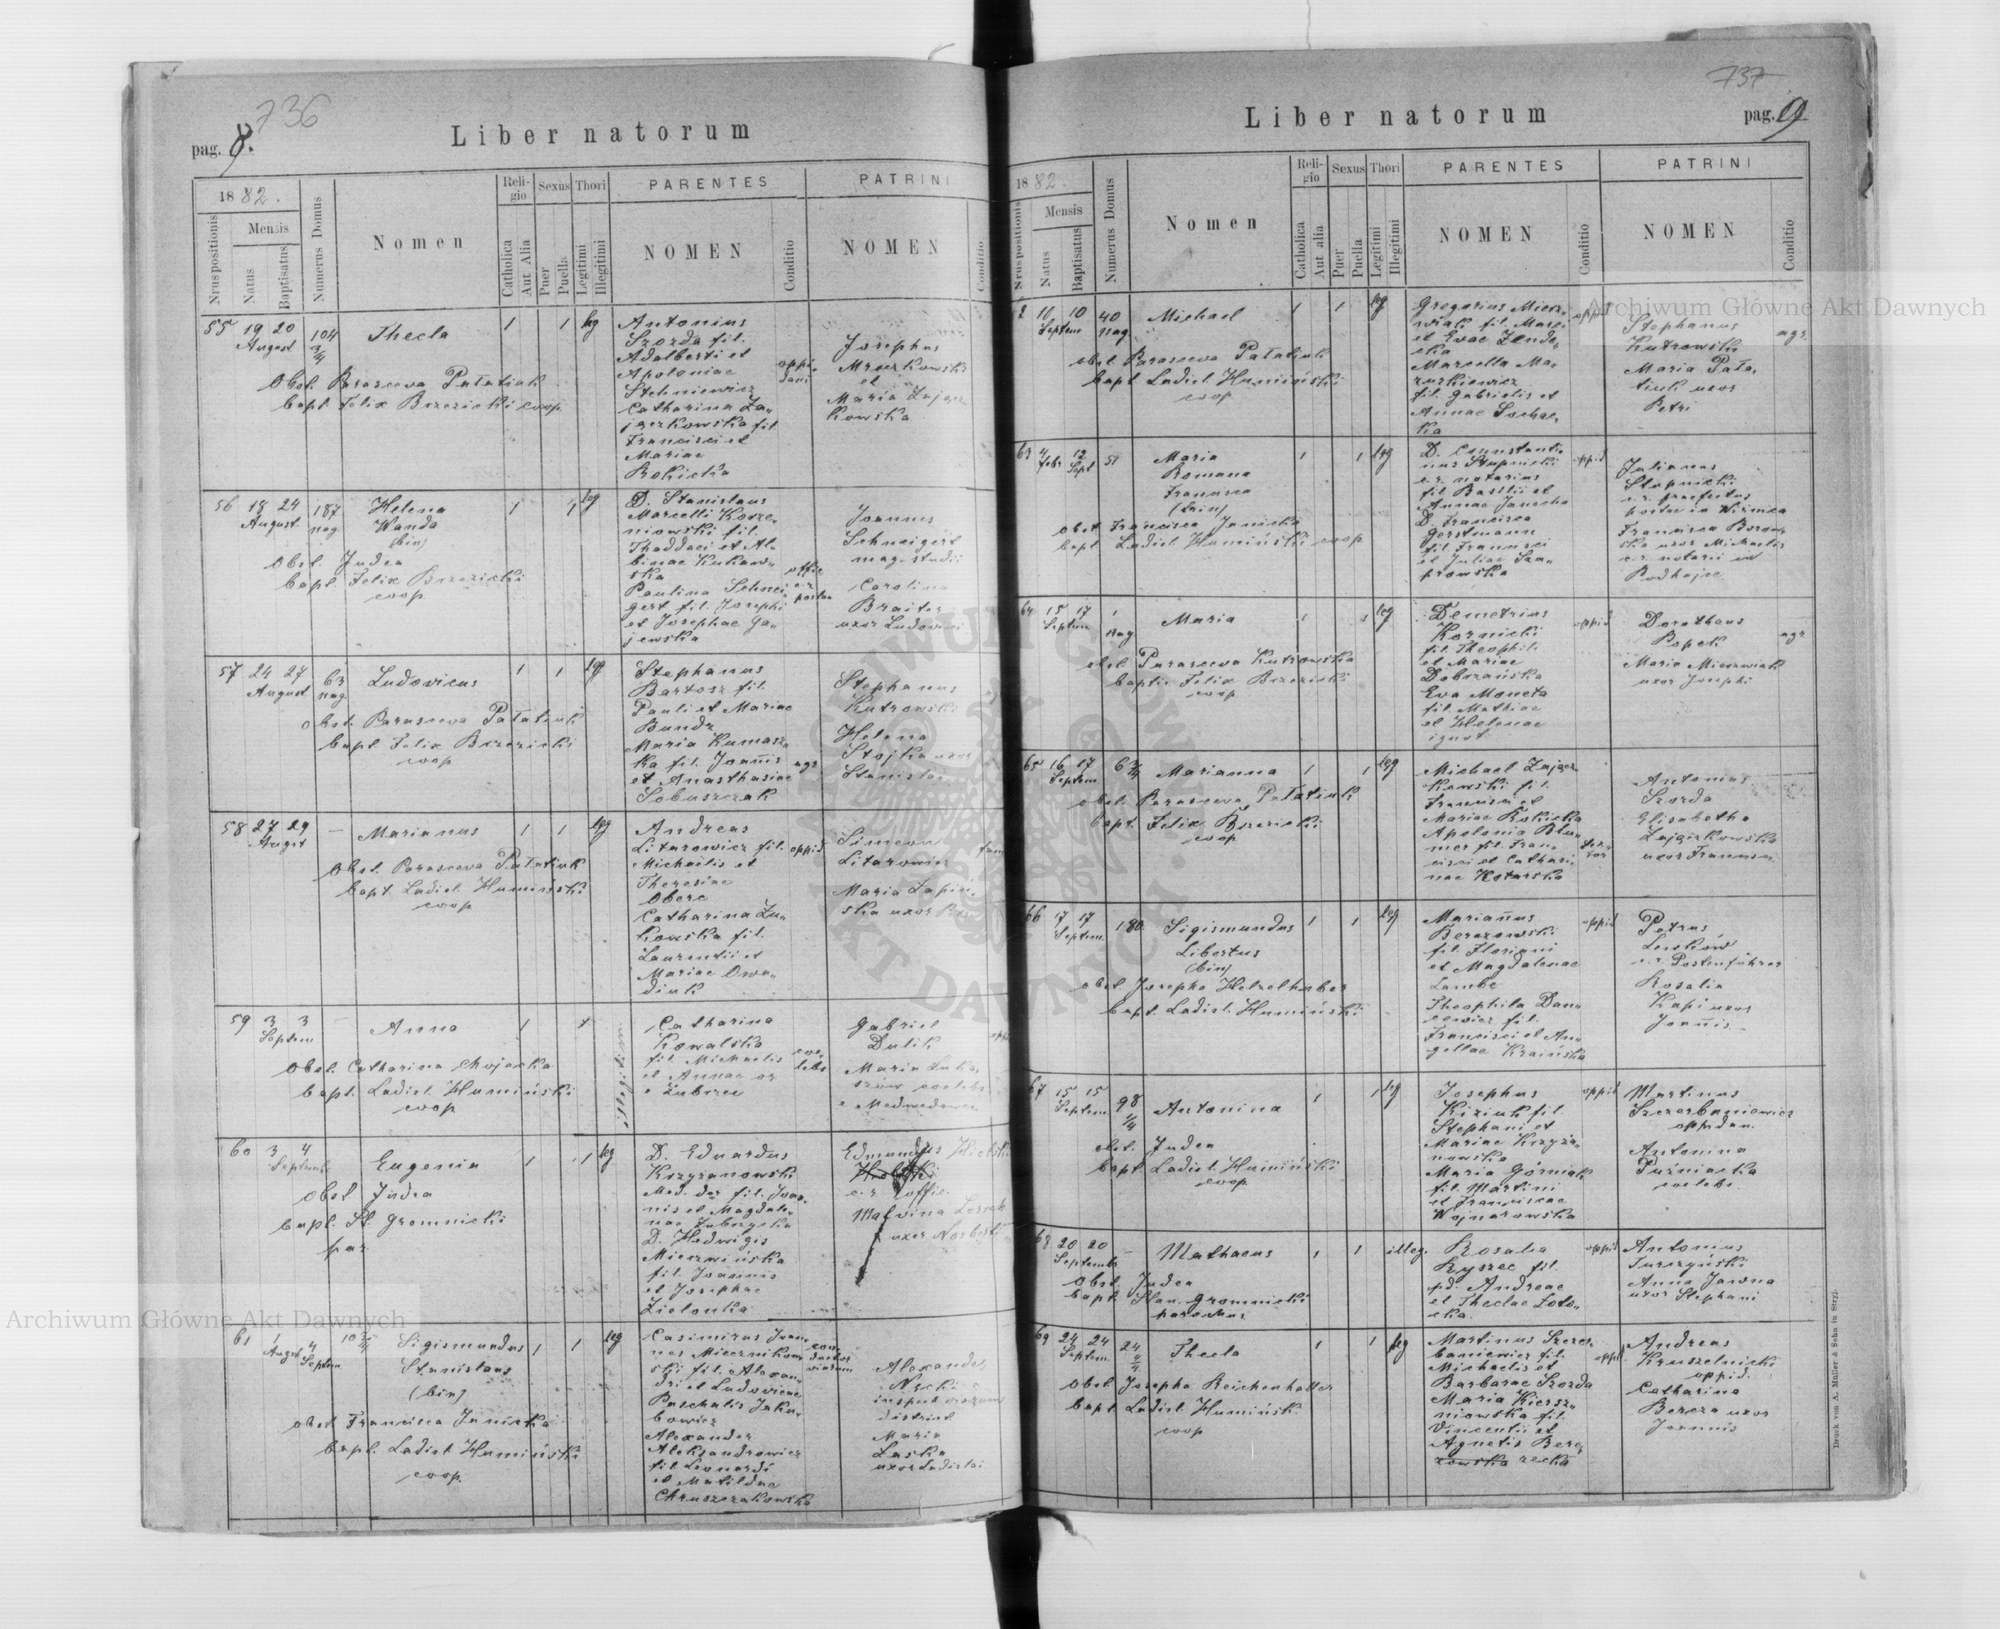 736
pag. 8.
Liber natorum
1882.
Mensis
Nrus positionis
Natus
Baptisatus
Numerus Domus
Nomen
Religio
Catholica
Aut Alia
Sexus
Puer
Puella
Thori
Legitimi
Illegitimi
PARENTES
NOMEN
Conditio
PATRINI
NOMEN
Conditio
55 19 20 August 104 3/4 Thecla 1 1 leg
Obst. Parasceva Pałatiuk
bapt Felix Brzezicki coop
Antonius
Szozda fil.
Adalberti et
Apoloniae
Stehniewicz
Catharina Za-
jączkowska fil
Francisci et
Mariae
Rokicka
oppi-
dani
Josephus
Mroczkowski
et
Maria Zającz-
kowska
56 18 24 August 187 nag. Helena 1 1 leg
Wanda
(bin)
Obst. Judea
bapt Felix Brzezicki
coop
D. Stanislaus
Marcelli Korze-
niowski fil.
Thaddaei et Al-
binae Kukaw-
ska
Paulina Schnei-
gert fil. Josephi
et Josephae Ga-
jewska
offic
c. r.
postae
Joannes
Schneigert
mag. studii
Carolina
Braiter
uxor Ludovici
57 24 27 August 63 nag. Ludovicus 1 1 leg
obst. Parasceva Pałatiuk
bapt Felix Brzezicki
coop
Stephanus
Bartosz fil.
Pauli et Mariae
Bundz
Maria Kumasz-
ka fil. Joannis
et Anasthasiae
Sobuszczak
agr
Stephanus
Kutrowski
Helena
Stojka uxor
Stanislai
58 27 29 August — Marianus 1 1 leg
Obst. Parasceva Pałatiuk
bapt. Ladisl. Humiński
coop
Andreas
Litarowicz fil.
Michaelis et
Theresiae
Oberc
Catharina Żu-
kowska fil.
Laurentii et
Mariae Owa-
diuk
oppid
Simeon
Litarowicz
Maria Łapiń-
ska uxor
fam
59 3 3 Septem — Anna 1 illegitimi
Obst. Catharina Chojecka
bapt. Ladisl. Humiński
coop
Catharina
Kowalska
fil. Michaelis
et Annae
e Zubrzec
coe-
lebs
Gabriel
Dulik
Maria
coelebs
e Medwedowce
60 3 4 Septemb Eugenia 1 1 leg
obst Judea
bapt. St. Gromnicki
par
D. Eduardus
Krzyżanowski
Med. dor fil. Joan-
nis et Magdale-
nae Zabrzycka
D. Hedwigis
Mierzwińska
fil. Joannis
et Josephae
Zielonka
Edmundus
c. r. offic.
Malvina
uxor Norberti
61 1 August 4 Septem 10 Sigismundus 1 1 leg
Stanislaus
(bin)
obst Francisca Janicka
bapt. Ladisl. Humiński
coop
Casimirus Joan-
nes Miecznikow-
ski fil. Alexan-
dri et Ludovicae
Paschalis Jaku-
bowicz
Alexander
Aleksandrowicz
fil Leonardi
et Matildae
Chruszczakowska
con-
ductor
viarum
Alexander
Nęcki
inspect
district
Maria
Laska
uxor Ladislai
737
Liber natorum
pag. 9
1882.
Nrus positionis
Mensis
Natus
Baptisatus
Numerus Domus
Nomen
Religio
Catholica
Aut alia
Sexus
Puer
Puella
Thori
Legitimi
Illegitimi
PARENTES
NOMEN
Conditio
PATRINI
NOMEN
Conditio
2 10 10 Septem 40 nag Michael 1 1 leg
obst Parasceva Pałatiuk
bapt Ladisl. Humiński
coop
Gregorius Mierz-
wiak fil. Marci
et Evae Zende-
cka
Marcella Ma-
zurkiewicz
fil. Gabrielis et
Annae Sochac-
ka
oppid
Stephanus
Kutrowski
Maria Pała-
tiuk uxor
Petri
agr.
63 4 febr 12 Sept 51 Maria 1 1 leg
Romana
Francisca
(trin)
obst Francisca Janicka
bapt Ladisl Humiński coop
D. Constanti-
nus Stupnicki
c. r. notarius
fil Basilii et
Annae Janocha
D. Francisca
Gerstmann
fil. Francisci
et Juliae Sza-
prowska
oppid
Julianus
Stupnicki
c. r. praefectus
postae in Niżnica
Francisca Boraw-
ska uxor Michaelis
c. r. notarii in
Podhajce
64 15 17 Septem 1 nag Maria 1 1 leg
obst. Parasceva Kutrowska
baptis Felix Brzezicki
coop
Demetrius
Koznicki
fil. Theophili
et Mariae
Dobrzańska
Eva Moneta
fil. Mathiae
et Helenae
ignot
oppid
Dorotheus
Popek
Maria Mierzwiak
uxor Josephi
agr
65 16 17 Septem 63/4 Marianna 1 1 leg
obst. Parasceva Pałatiuk
bapt. Felix Brzezicki
coop
Michael Zającz-
kowski fil.
Francisci et
Mariae Rokicka
Apolonia Blu-
mer fil. Fran-
cisci et Cathari-
nae Kotarska
Antonius
Szozda
Elisabetha
Zajączkowska
uxor Francisci
66 17 17 Septem. 180 Sigismundus 1 1 leg
Libertus
(bin)
obst Josepha Hetzelhuber
bapt. Ladisl. Humiński
Mariañus
Berezowski
fil. Floriani
et Magdalenae
Lambe
Theophila Dan-
cewicz fil.
Francisci et An-
gellae Kraińska
oppid
Petrus
Leuków
c. r. Postenführer
Rosalia
Kapi uxor
Joannis
67 15 15 Septem 98 1/4 Antonina 1 1 leg
obst. Judea
bapt Ladisl. Humiński
coop
Josephus
Kiziuk fil.
Stephani et
Mariae Krzyża-
nowska
Maria Górniak
fil. Martini
et Franciscae
Wojnarowska
oppid
Martinus
Szczerbaniewicz
oppidan.
Antonina
Puźniacka
coelebs.
68 20 20 Septemb — Mathaeus 1 1 illeg.
Obst. Judea
bapt. Stan. Gromnicki
parochus
Rosalia
Kyszec fil.
pd. Andreae
et Theclae Łoto-
cka.
oppid
Antonius
Turczyński
Anna Jawna
uxor Stephani
69 24 24 Septem. 24 2/4 Thecla 1 1 leg
Obst Josepha Reichenhalter
bapt Ladisl Humiński
coop
Martinus Szczer-
baniewicz fil.
Michaelis et
Barbarae Szozda
Maria Kiersz-
niowska fil.
Vincentii et
Agnetis Bere-
zowska zecka
oppid
Andreas
Kruszelnicki
oppid.
Catharina
Bereza uxor
Joannis
Druck von A. Müller & Sohn in Stryj.
Archiwum Główne Akt Dawnych
Archiwum Główne Akt Dawnych
ARCHIWUM GŁÓWNE AKT DAWNYCH